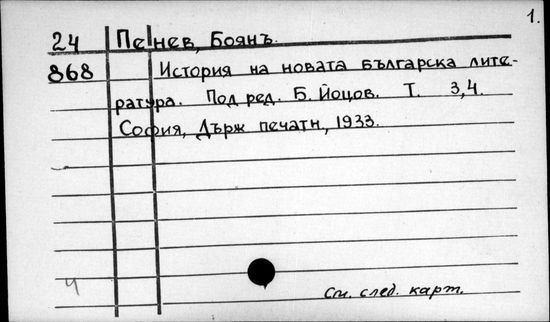 1.
24 Пенев, Боянъ.
868 История на новата българска лите-
ратура. Под ред. Б. Йоцов. Т. 3,4.
София, Държ печатн., 1933.
Ч
См. след. карт.